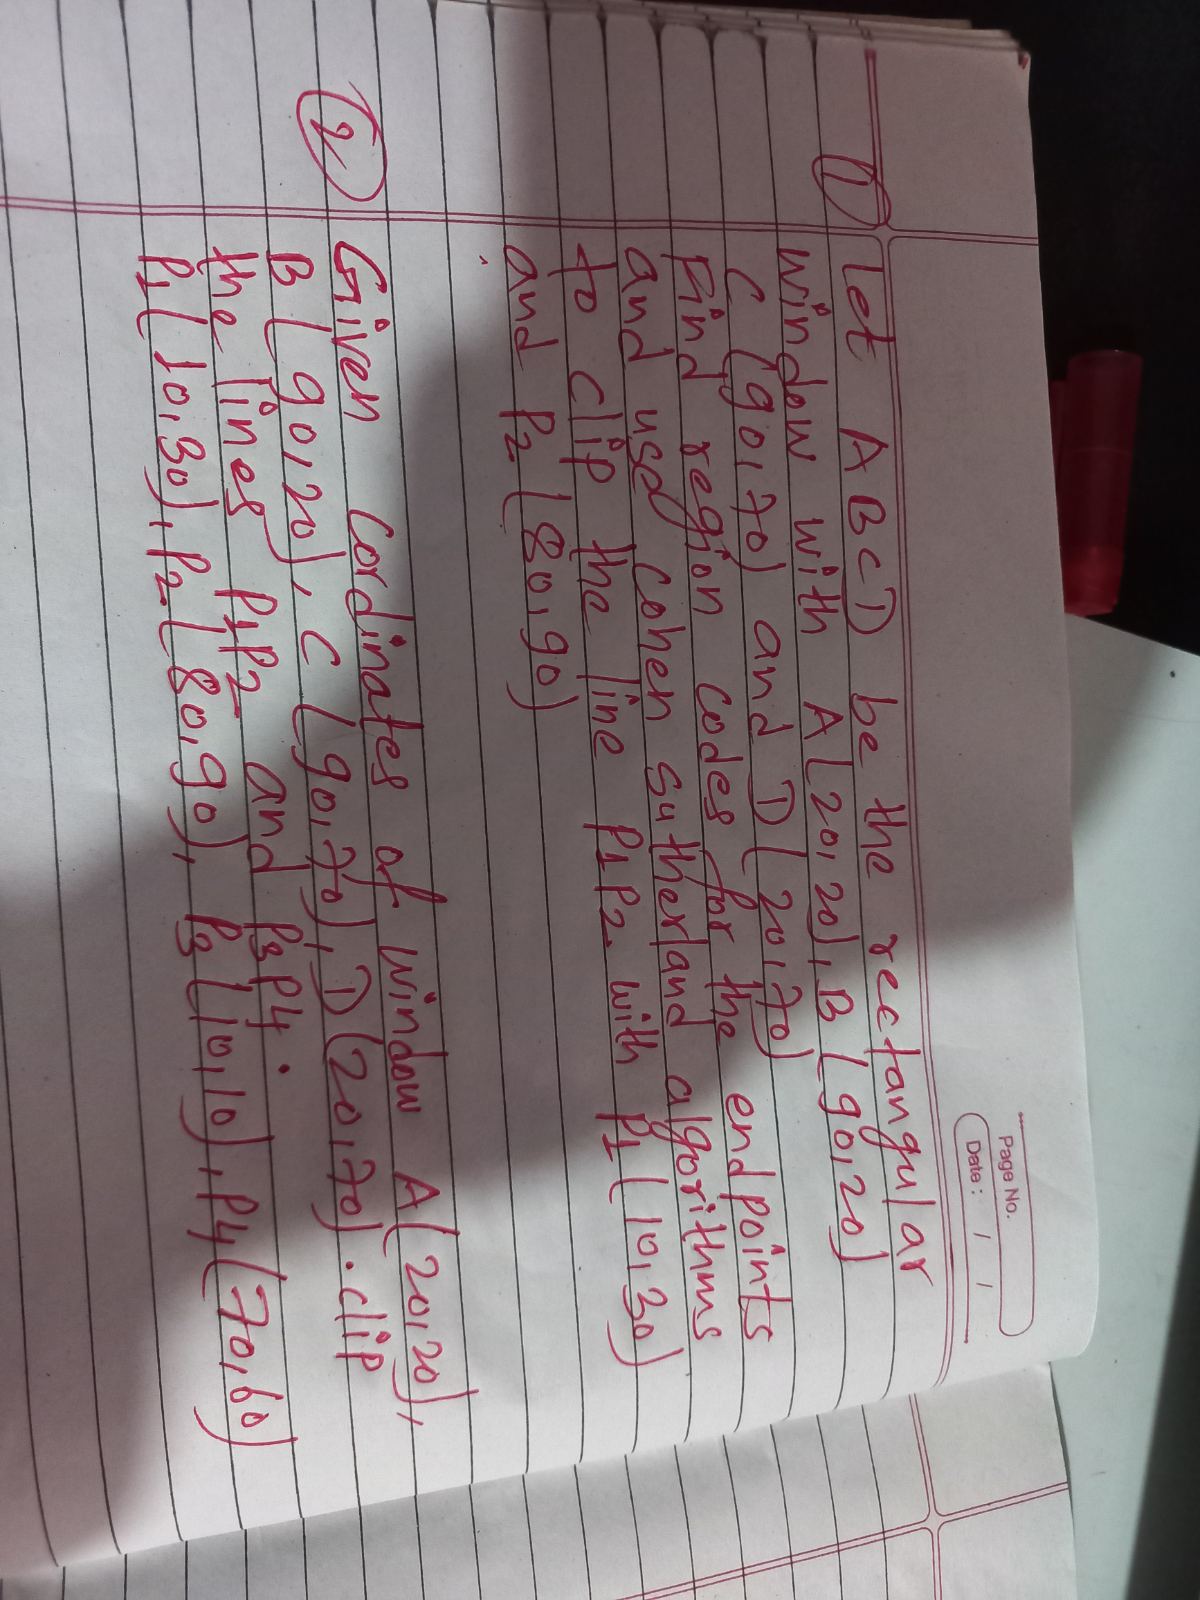 Page No.
Date : / /
① let ABCD be the rectangular
window with A(20,20), B(90,20)
C (90,70) and D(20,70)
Find region codes for the endpoints
and used cohen sutherland algorithms
to clip the line P1P2 with P1(10,30)
and P2 (80,90)
② Given cordinates of window A(20,20),
B(90,20), C(90,70), D(20,70). clip
the lines P1P2 and P3P4.
P1(10,30), P2(80,90), P3(10,10), P4(70,60)